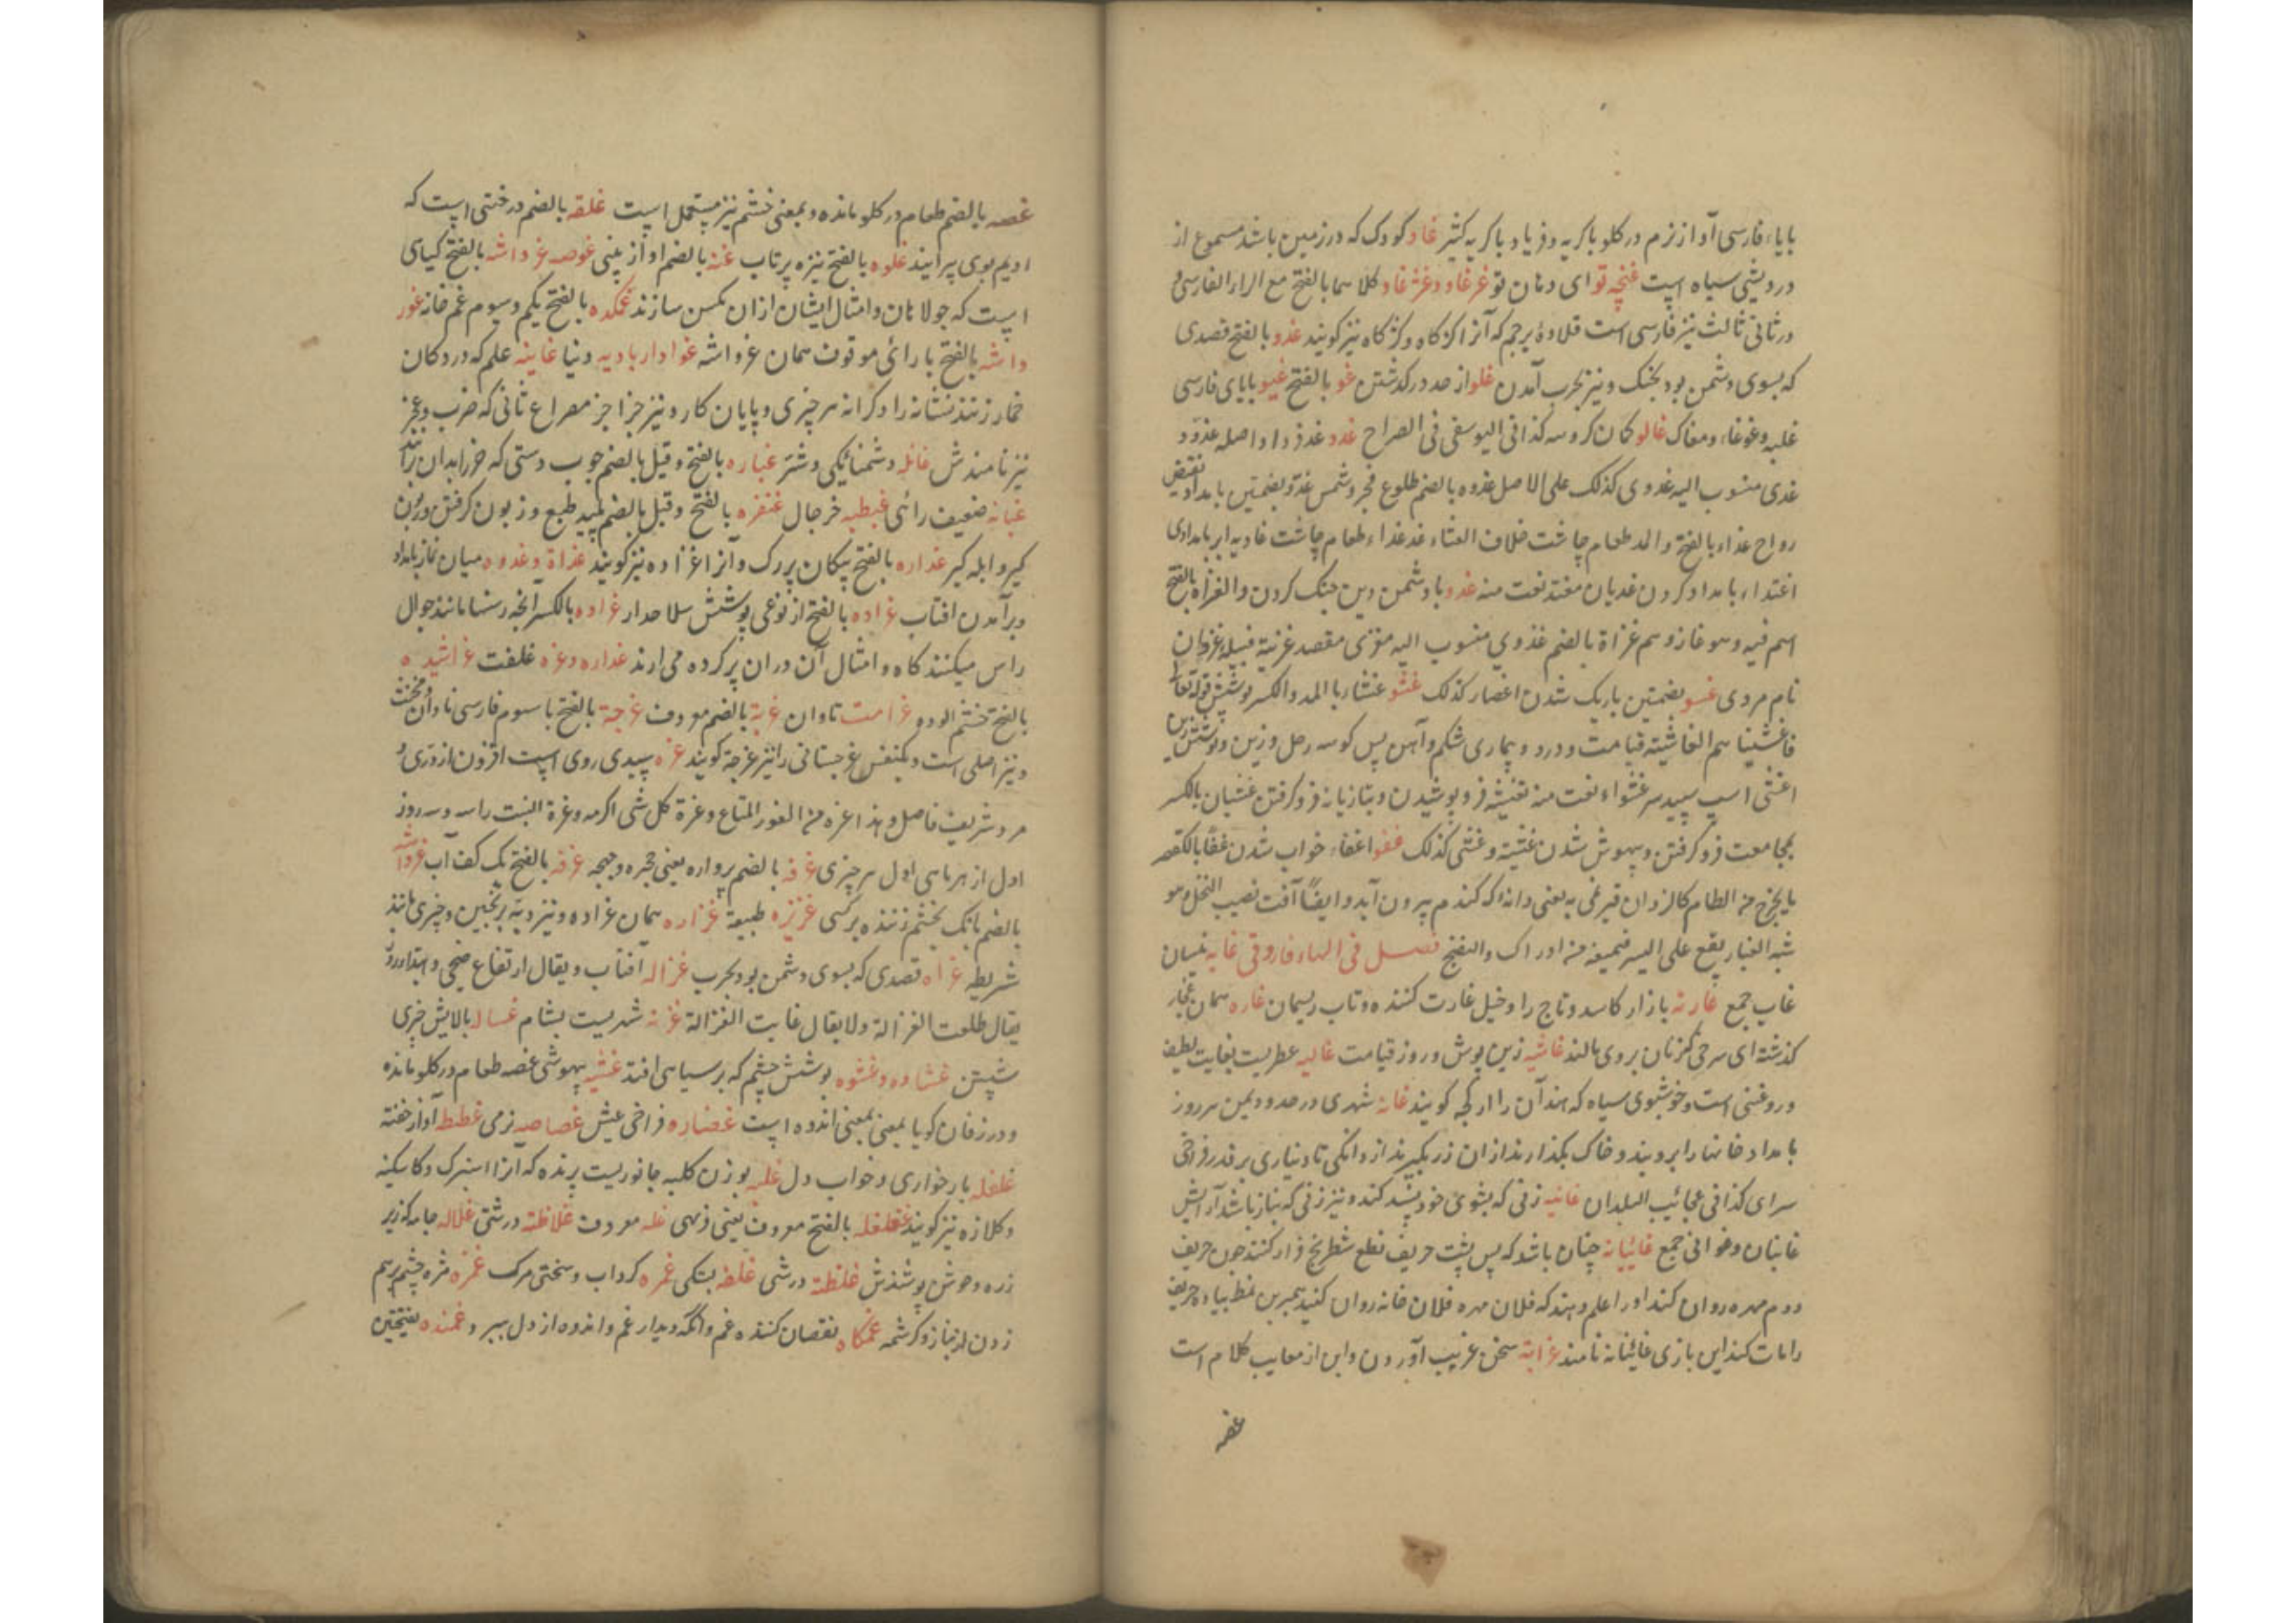 بابای فارسی آواز نرم در کلو با کریه و فریاد با کریه کثیر غاو کودک که در زمین باشد مسموع از
درویشی سیاه است غنچه تو ای دهان تو غرغاو و غژغاو کلاهما بالفتح مع الراء الفارسی و
در ثانی ثالث نیز فارسی است قلادهٔ پرچم که آنرا کژگاه و کژکاه نیز کویند غدو بالفتح قصدی
که بسوی دشمن بود بجنک و نیز بحرب آمدن غلو از حد در کذشتن غو بالفتح غیو بایای فارسی
غلبه و غوغا و مغاک غالو کمان کروهه کذا فی الیوسفی فی الصراح غدو غد فردا و اصله غدو
غدی منسوب الیه غدوی کذلک علی الاصل غدوه بالضم طلوع فجر و شمس غدو بضمتین بامداد نقیض
رواح غداء بالفتح والمد طعام چاشت خلاف العشاء غداء طعام چاشت غادیه ابر بامدادی
اغتداء بامداد کردن غدیان نعت منه غزو با دشمن دین جنک کردن والغزاه بالفتح
اسم فیه و هو غاز و هم غزاة بالضم غزوی منسوب الیه مغزی مقصد غزیة قبیله غزوان
نام مردی غسو بضمتین تاریک شدن اغسا کذلک غشو غشاء بالمد والکسر پوشش قوله تعالی
فاغشیناهم الغاشیة قیامت و درد و بیماری شکم و آهن پس کوهه رحل و زین و پوشش زین
اغشی اسب سپید سر غشواء نعت منه تغشیه فرو پوشیدن و بتازیانه فرو کرفتن غشیان بالکسر
مجامعت فرو کرفتن و بیهوش شدن غشیة و غشی کذلک غفو اغفاء خواب شدن غفا بالقصر
ما یخرج من الطعام کالزوان فیرمی به یعنی دانه که کندم بیرون آید و ایضا آفت تصیب النخل و هو
شبه الغبار یقع علی البسر فیمنعه من ادراک والنضج فصل فی الهاء فاروقی غابه نیستان
غاب جمع غارة بازار کاسد و تاج را و خیل غارت کننده و تاب ریسمان غاره همان غنجار
کذشته ای سرخی که زنان بروی مالند غاشیه زین پوش و روز قیامت غالیه عطریست بغایت لطیف
و روغنی است و خوشبوی سیاه که هند آن را ارکجه کویند غانه شهری در حدود یمن هر روز
بامداد خانها را بروبند و خاک بکذارند از آن زر بکیرند از دانکی تا دیناری بر قدر فراخی
سرای کذا فی عجائب البلدان غانیه زنی که بشوی خود بسند کند و نیز زنی که بی نیاز باشد از آرایش
غانیان و غوانی جمع غائبانه چنان باشد که پس پشت حریف نطع شطرنج فراز کنند چون حریف
دوم مهره روان کند او را اعلم دهند که فلان مهره فلان خانه روان کنید همبرین نمط پیاده حریف
را مات کند این بازی غائبانه نامند غرابة سخن غریب آوردن و این از معایب کلام است
غصه
غصه بالضم طعام در کلو مانده و بمعنی خشم نیز مستعمل است غلقه بالضم درختی است که
ادیم بوی پیرایند غلوه بالفتح نیزه پرتاب غنه بالضم آواز بینی غوصه غرواشه بالفتح کیای
است که جولاهان و امثال ایشان از آن مکس سازند غمکده بالفتح یکم و سیوم غم خانه غور
واشه بالفتح با رائی موقوف همان غرواشه غوادار بادیه دنیا غایة علم که در دکان
خمار زنند نشانه را و کرانه هر چیزی و پایان کار و نیز جزا جز مصراع ثانی که ضرب و عجز
نیز نامندش غائله دشمنانکی و شر غباره بالفتح و قیل بالضم چوب دستی که خر را بدان رانند
غبانه ضعیف رائی غبطه خرجال غنفره بالفتح و قیل بالضم پلید طبع و زبون کرفتن و زبون
کیر و ابله کیر غداره بالفتح پیکان بزرک و آنرا غزاوه نیز کویند غداة و غدوه میان نماز بامداد
و برآمدن افتاب غراده بالفتح از نوعی پوشش سلاحدار غراره بالکسر آنچه رسنها مانند جوال
راس میکنند کاه و امثال آن در آن پر کرده می ارند غداره و غره غلفت غراشیده
بالفتح خشم الوده غرامت تاوان غربة بالضم معروف غرچه بالفتح با سوم فارسی نادان و مخنث
و نیز اصلی است و یکنفس غرجستانی را نیز غرچه کویند غره سپیدی روی اسپ افزون از درمی و
مرد شریف فاضل و هذا غره من الغرر المتاع و غرة کل شی اکرمه و غرة البیت راسه و سه روز
اول از هر ماهی اول هر چیزی غرفه بالضم پرواره یعنی حجره و چپچه غرفه بالفتح یک کف آب غرواشه
بالضم بانک بخشم زننده بر کسی غریزه طبیعة غزاره همان غراده و نیز دیة برنجین و چیزی مانند
شریطه غزاه قصدی که بسوی دشمن بود بحرب غزاله آفتاب و یقال ارتفاع ضحی و ابتداء روز
یقال طلعت الغزالة ولا یقال غابت الغزالة غزنه شهریست بشام غساله بالایش چیزی
شستن غشاده و غشوه پوشش چشم که بر سیاهی افتد غشیه بیهوشی غصه طعام در کلو مانده
و در زفان کویا بمعنی بمعنی اندوه است غضاره فراخی عیش غصاصه نرمی غطیط آواز خفته
غلغله بار خواری و خواب دل غلبه بوزن کلبه جانوریست پرنده که آنرا اسبرک و کاسکینه
و کلازه نیز کویند غلغله بالفتح معروف یعنی زهی غله معروف غلاظة درشتی غلاله جامه که زیر
زره و جوشن پوشندش غلظة درشتی غلفه بستکی غمره کرداب و سختی مرک غمزه مژه چشم برهم
زدن از ناز و کرشمه غمکاه نقصان کننده غم و انکه دیدار غم و اندوه از دل ببرد غمنده بفتحتین